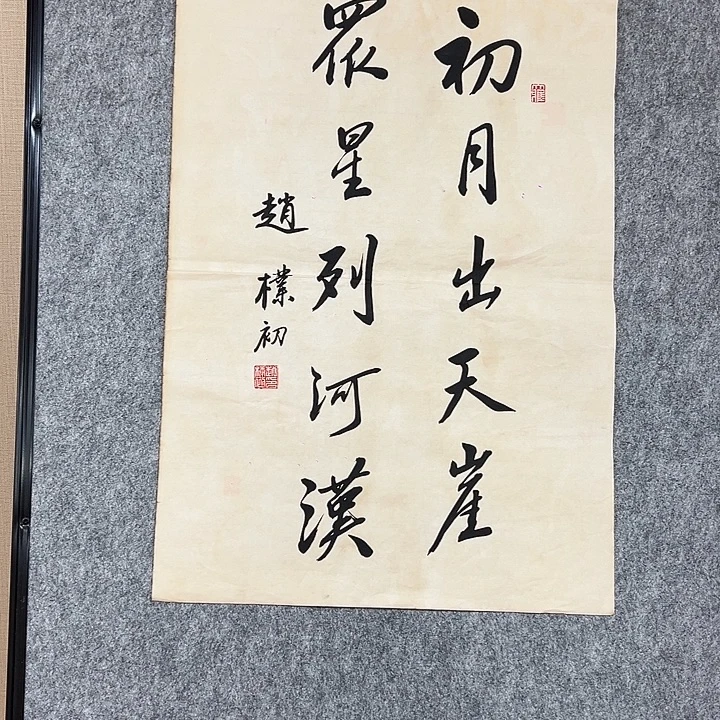 初月出天崖
眾星列河漢
趙樸初